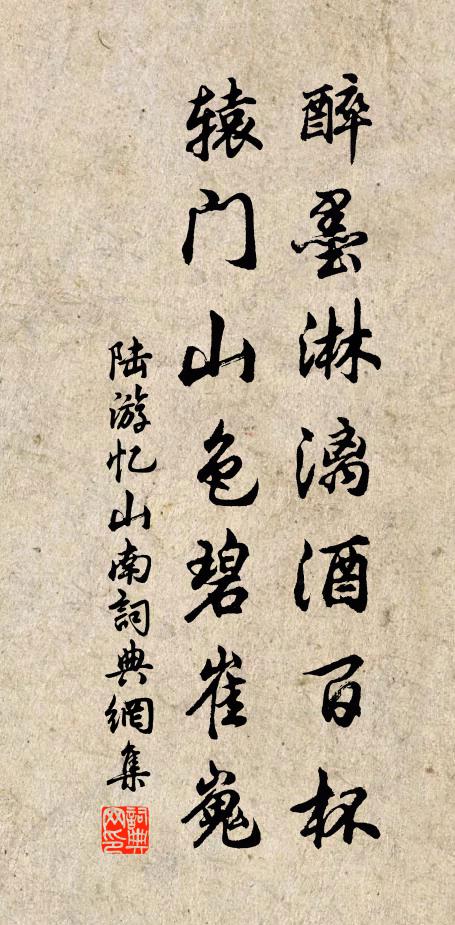 醉墨淋漓酒百杯
辕门山色碧崔嵬
陆游忆山南詞典網集
詞典网印